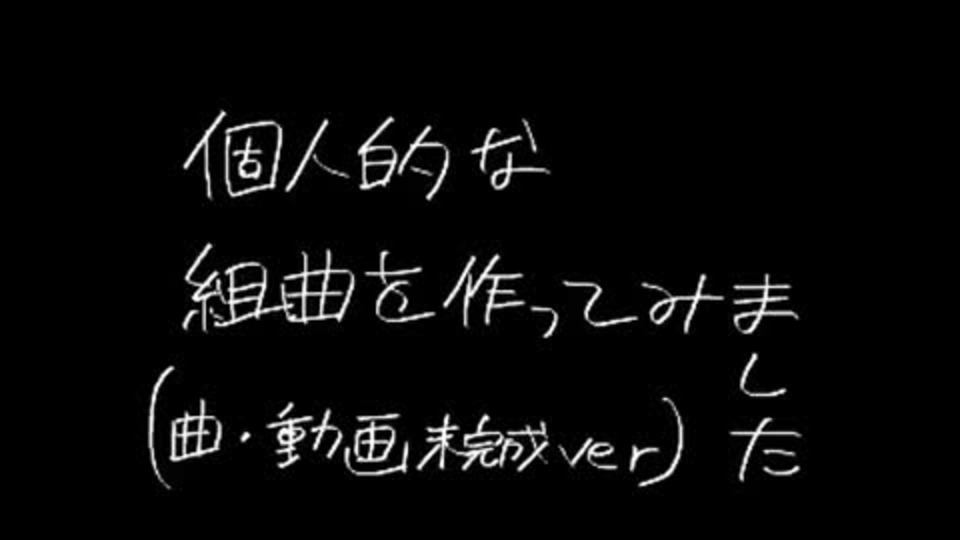 個人的な
組曲を作ってみました
(曲・動画未完成ver)